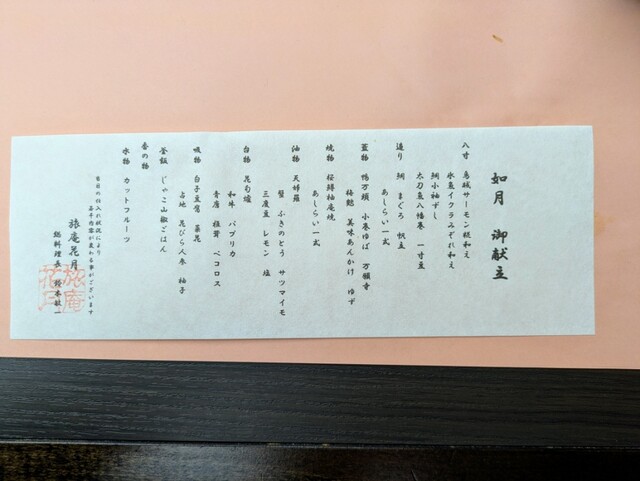 如月 御献立
八寸 烏賊サーモン糀和え
氷魚イクラみぞれ和え
鯛小袖ずし
太刀魚八幡巻 一寸豆
造り 鯛 まぐろ 帆立
あしらい一式
蓋物 鴨万頭 小巻ゆば 万願寺
梅麩 美味あんかけ ゆず
焼物 桜鱒柚庵焼
あしらい一式
油物 天婦羅
蟹 ふきのとう サツマイモ
三度豆 レモン 塩
台物 花旬爐
和牛 パプリカ
青唐 椎茸 ペコロス
吸物 白子豆腐 菜花
占地 花びら人参 柚子
釜飯 じゃこ山椒ごはん
香の物
水物 カットフルーツ
当日の仕入れ状況により
若干内容が変わる事がございます
旅庵花月
総料理長 鈴木
旅庵
花月